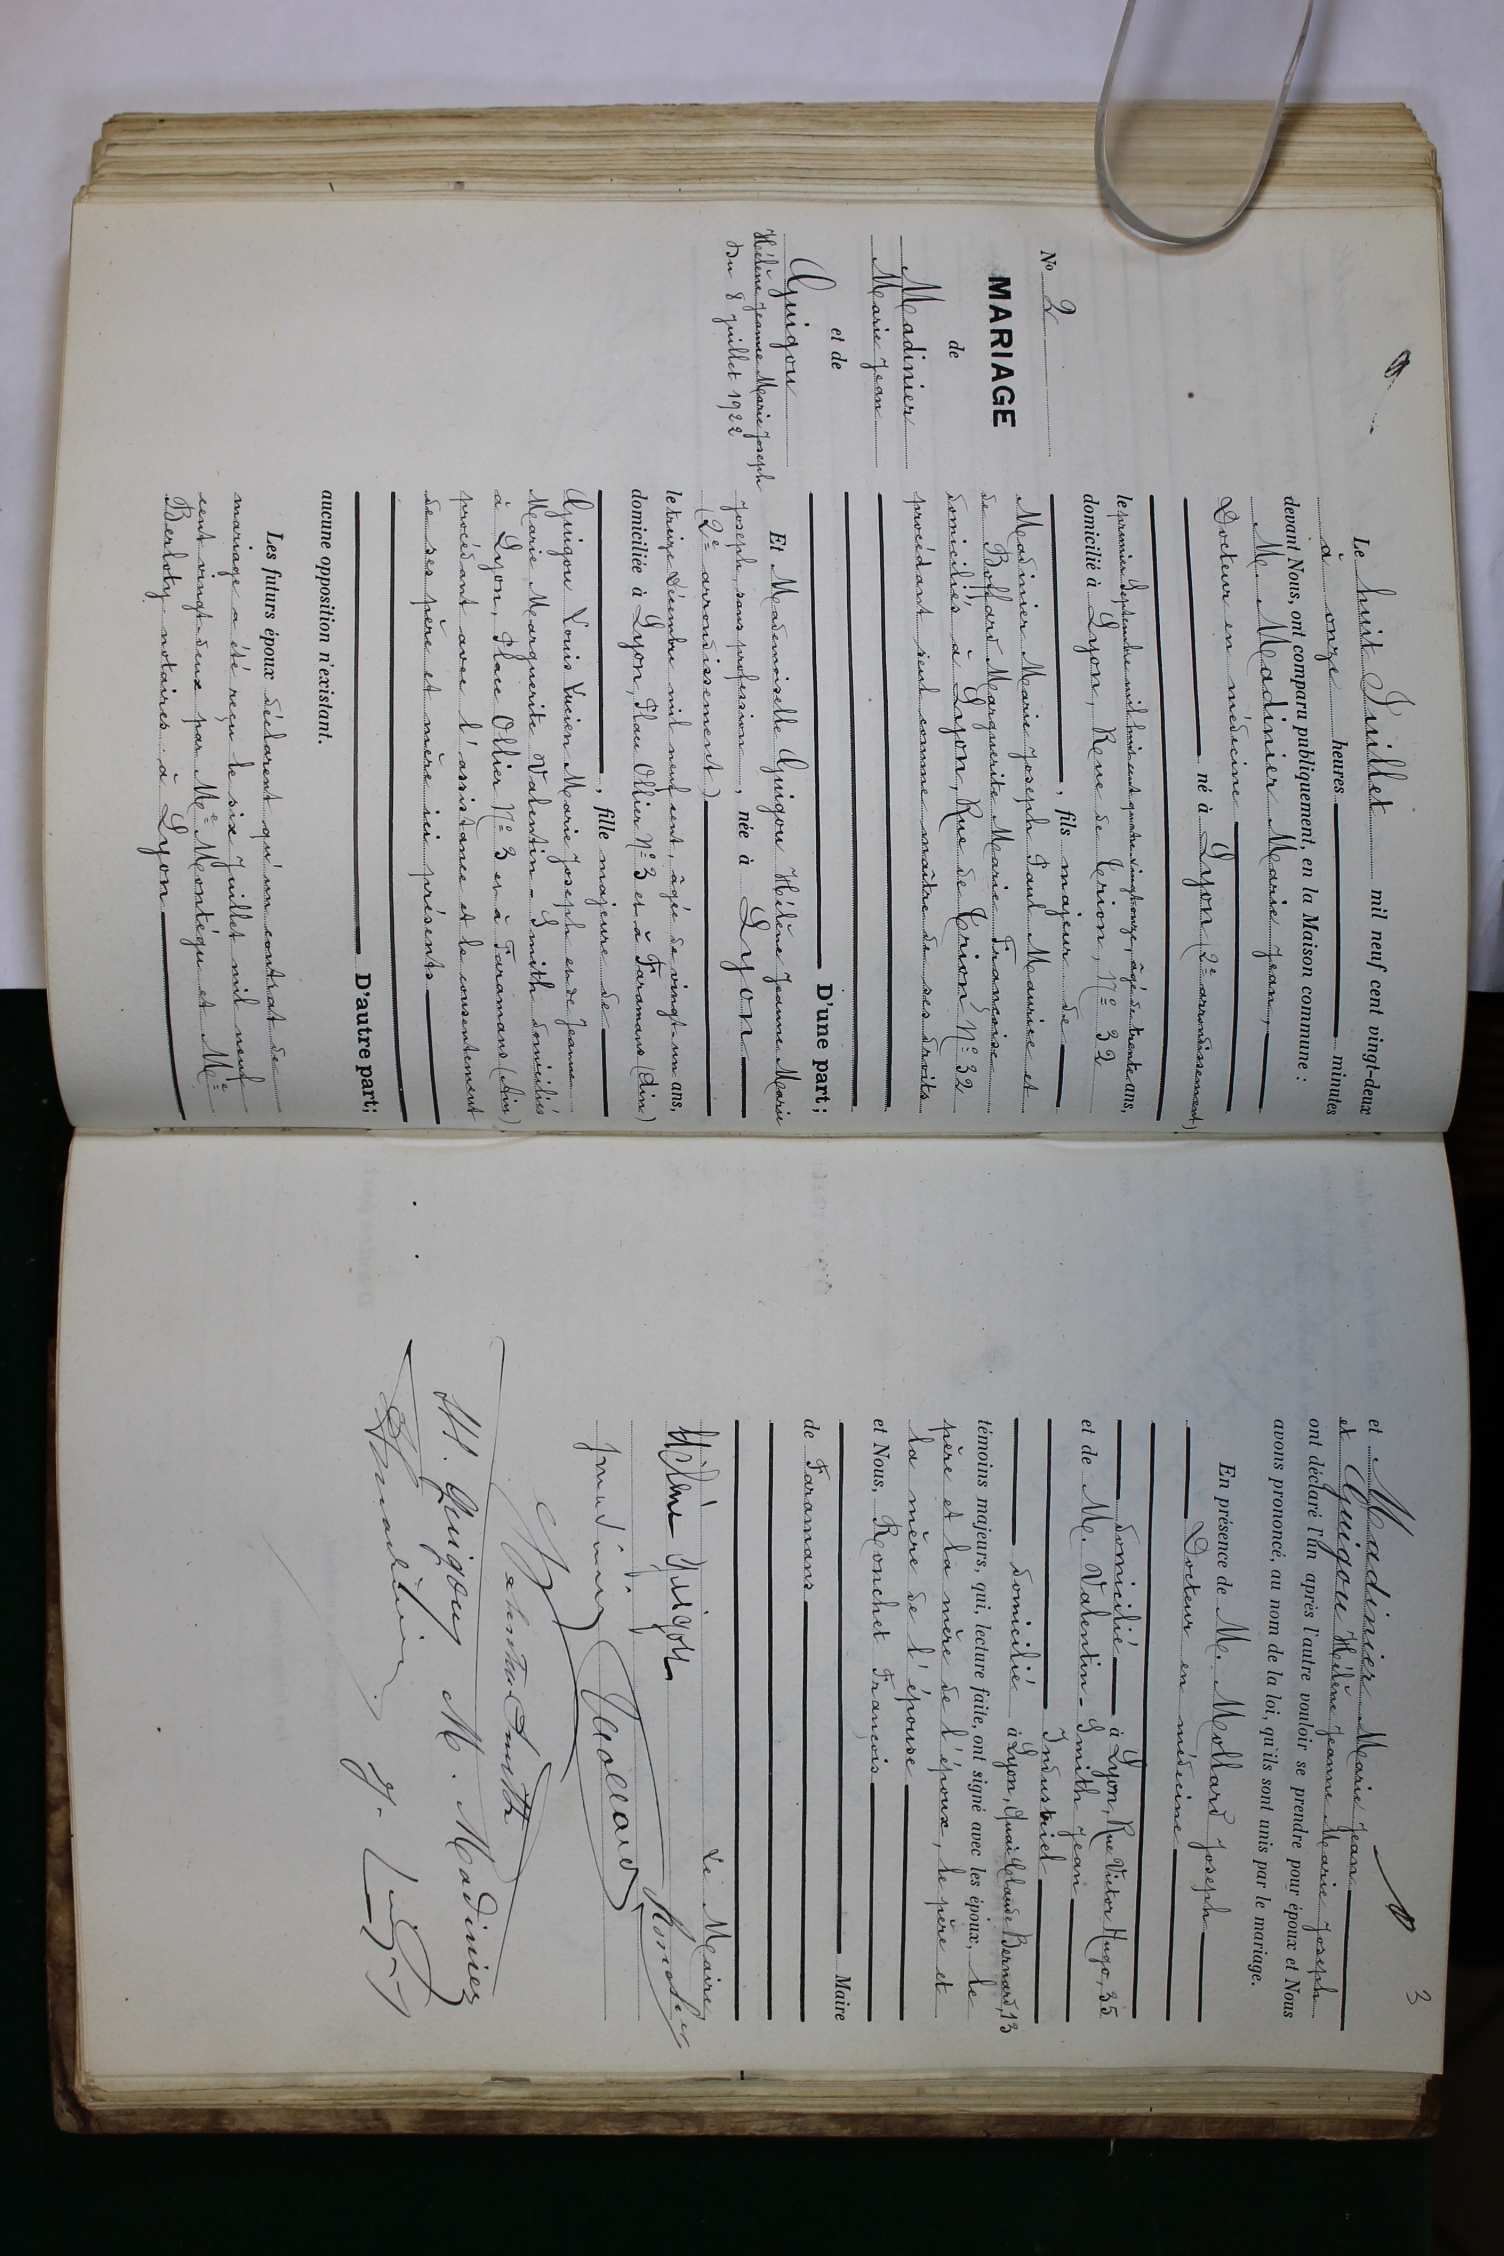 N° 2
MARIAGE
de
Madinier
Marie Jean
et de
Guigou
Hélène Jeanne Marie Joseph
Du 8 juillet 1922
Le huit Juillet mil neuf cent vingt-deux
à onze heures minutes
devant Nous, ont comparu publiquement, en la Maison commune :
M. Madinier Marie Jean,
Docteur en médecine
né à Lyon (2e arrondissement)
le premier Septembre mil huit cent quatre vingt onze, âgé de trente ans,
domicilié à Lyon, Rue de Trion, N° 32
, fils majeur de
Madinier Marie Joseph Paul Maurice et
de Boffard Marguerite Marie Françoise
domiciliés à Lyon, Rue de Trion N° 32
procédant seul comme maître de ses droits
D'une part ;
Et Mademoiselle Guigou Hélène Jeanne Marie
Joseph, sans profession, née à Lyon
(2e arrondissement)
le treize Décembre mil neuf cent, âgée de vingt-un ans,
domiciliée à Lyon, Place Ollier N° 3 et à Faramans (Ain)
, fille majeure de
Guigou Louis Lucien Marie Joseph et de Jeanne
Marie Marguerite Valentin-Smith domiciliés
à Lyon, Place Ollier N° 3 et à Faramans (Ain)
procédant avec l'assistance et le consentement
de ses père et mère ici présents
D'autre part ;
aucune opposition n'existant.
Les futurs époux déclarent qu'un contrat de
mariage a été reçu le six Juillet mil neuf
cent vingt-deux par Me Montégu et Me
Berloty notaires à Lyon
3
et Madinier Marie Jean
et Guigou Hélène Jeanne Marie Joseph
ont déclaré l'un après l'autre vouloir se prendre pour époux et Nous
avons prononcé, au nom de la loi, qu'ils sont unis par le mariage.
En présence de M. Mollard Joseph
Docteur en médecine
domicilié à Lyon, Rue Victor Hugo, 35
et de M. Valentin-Smith Jean
Industriel
domicilié à Lyon, Quai Claude Bernard, 13
témoins majeurs, qui, lecture faite, ont signé avec les époux, le
père et la mère de l'époux, le père et
la mère de l'épouse
et Nous, Ronchet François
Maire
de Faramans
Le Maire
Hélène Guigou
Ronchet
J madinier
Mollard
Valentin Smith
H. Guigou M. Madinier